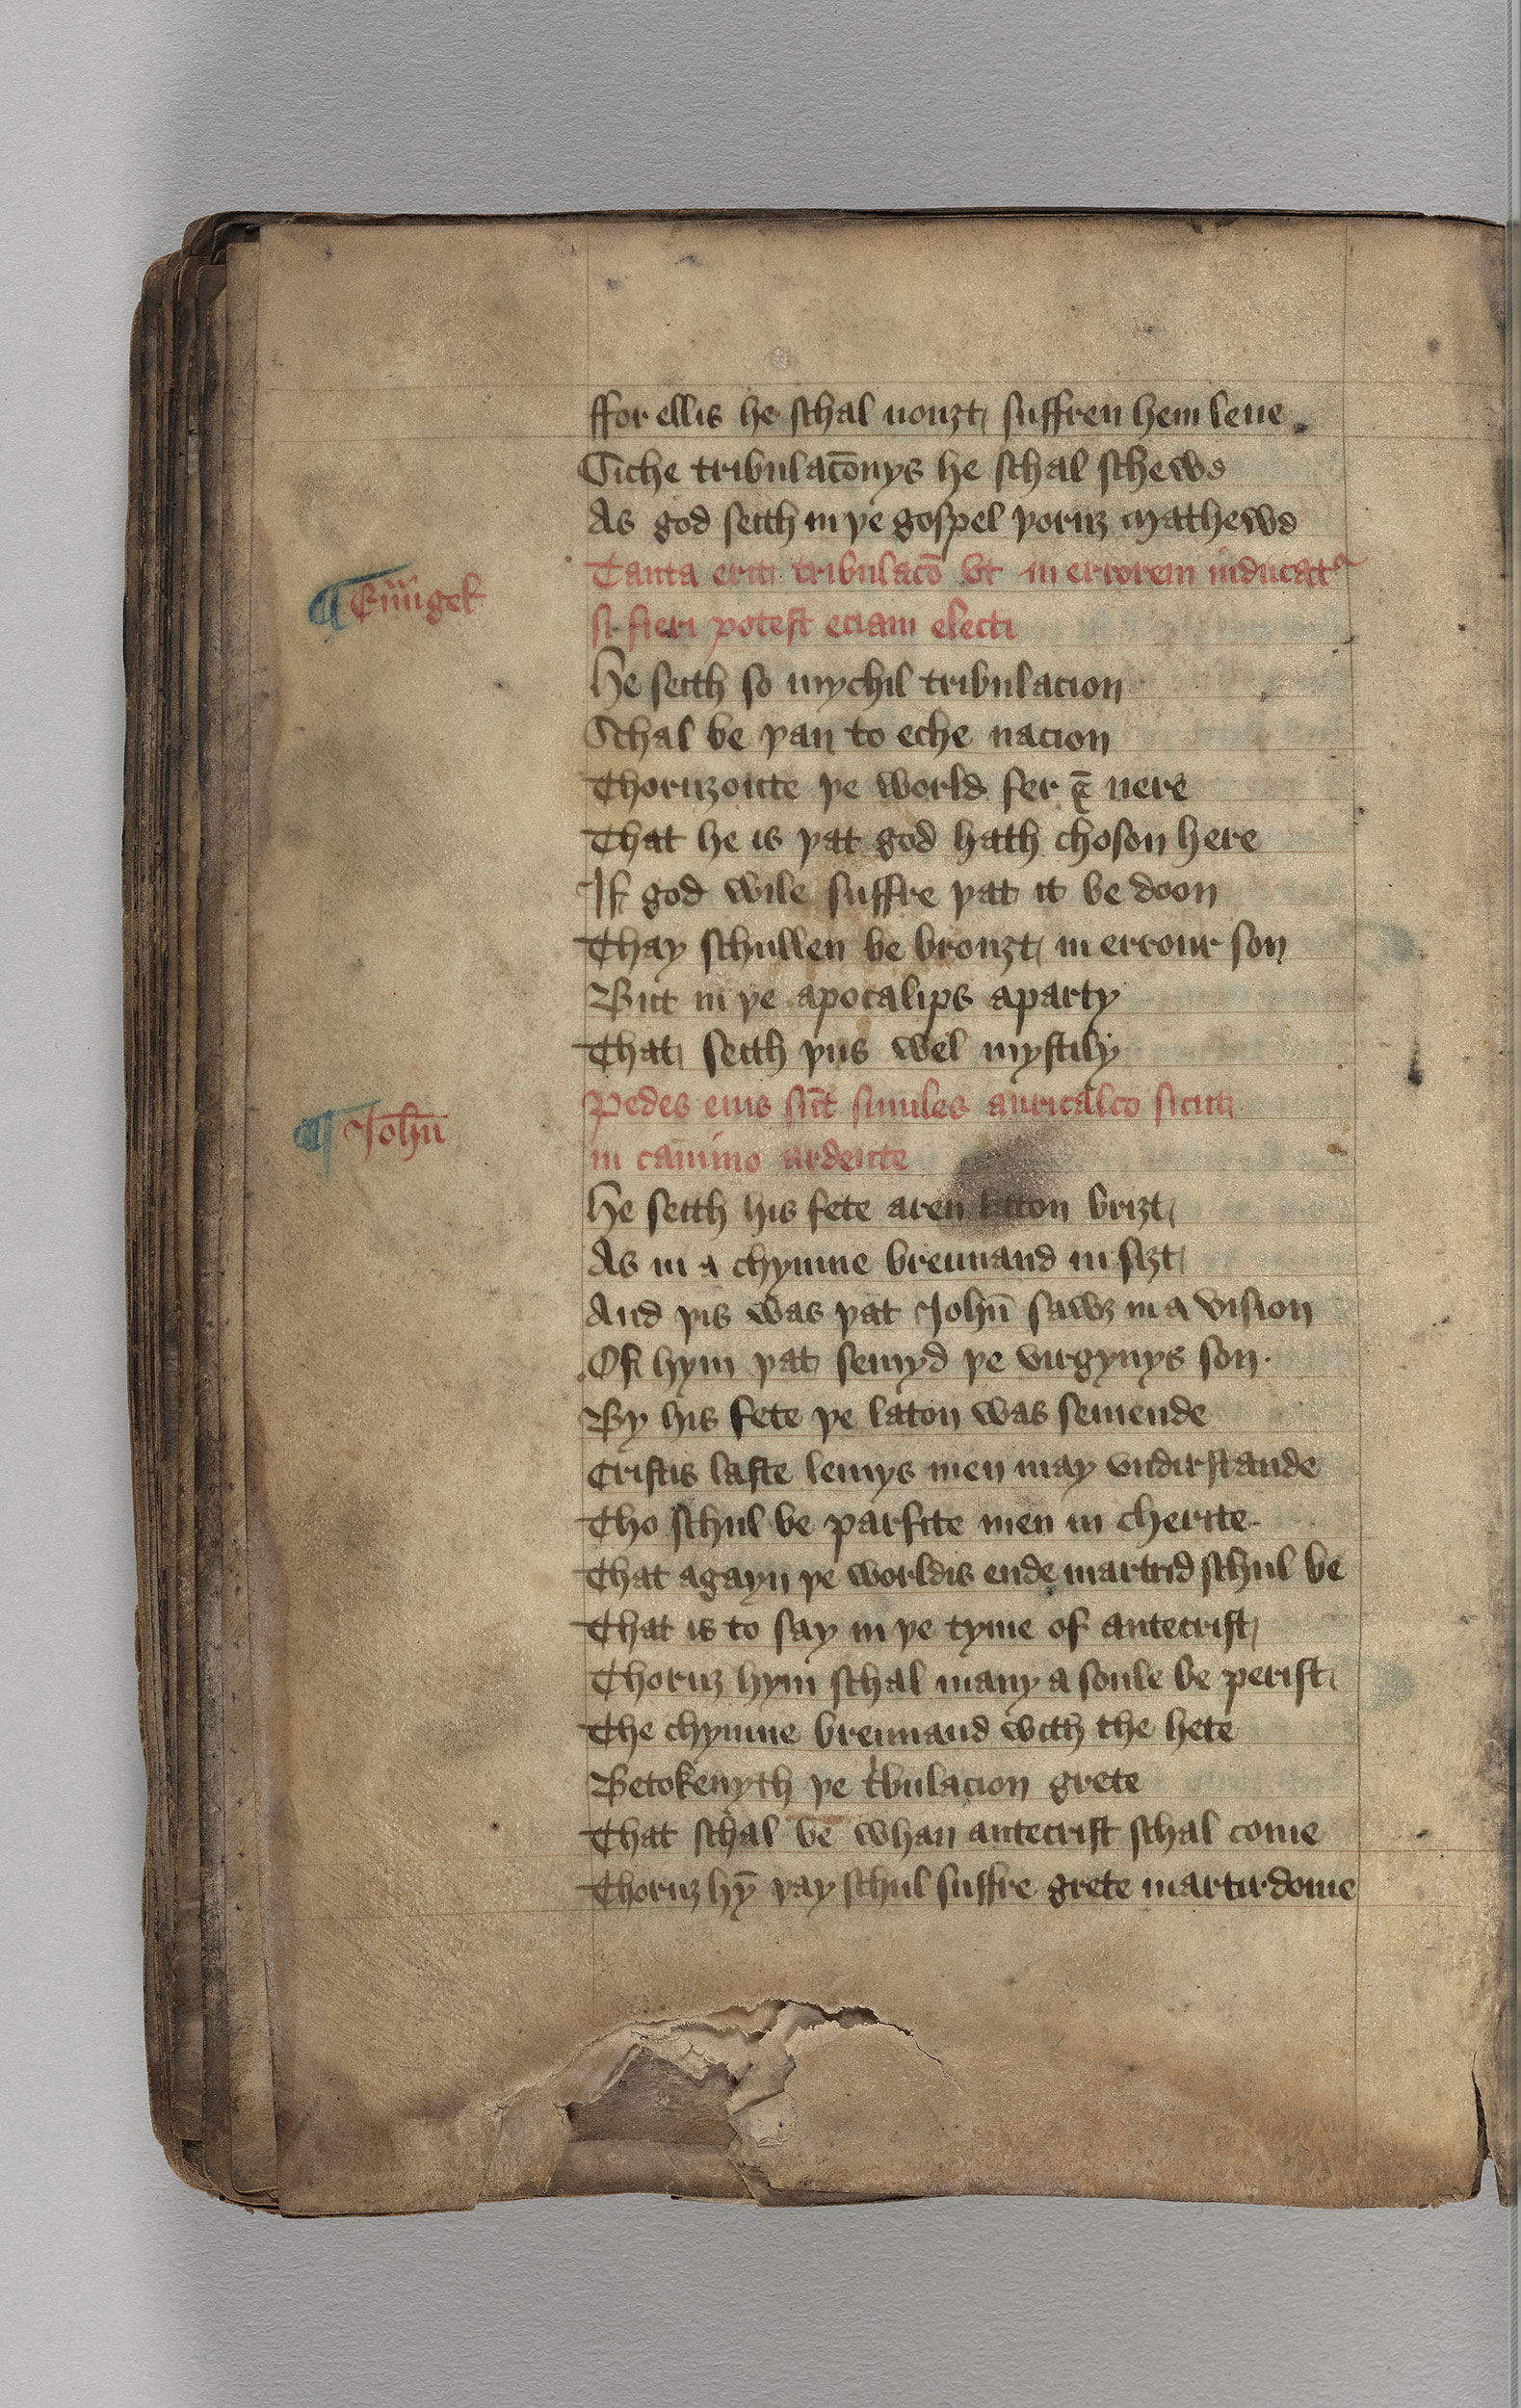 ffor ellis he schal nouȝt suffren hem leue
Siche tribulac̄onys he schal schewe
As god seith in þe gospel þoruȝ mathewe
Tanta erit tribulac̄o vt in errorem inducat᷑
si fieri potest eciam electi
¶ Eūngel
He seith so mychil tribulacion
Schal be þan to eche nacion
Thoruȝoute þe world fer & nere
That he is þat god hath choson here
If god wile suffre þat it be doon
Thay schullen be brouȝt in errour son
But in þe apocalips aparty
That seith þus wel mystily
Pedes eius sūt similes auricalco sicut
in camino ardente
¶ Joħn
He seith his fete aren laton briȝt
As in a chymne brennand in siȝt
And þis was þat Joħn sawȝ in a vision
Of hym þat semyd þe virgynys son
By his fete þe laton was semende
Cristis laste lemys men may vndirstande
Tho schul be parfite men in cherite
That agayn þe worldis ende martrid schul be
That is to say in þe tyme of antecrist
Thoruȝ hym schal many a soule be perist
The chymne brennand with the hete
Betokenyth þe tͥbulacion grete
That schal be whan antecrist schal come
Thoruȝ hȳ þay schul suffre grete martirdome